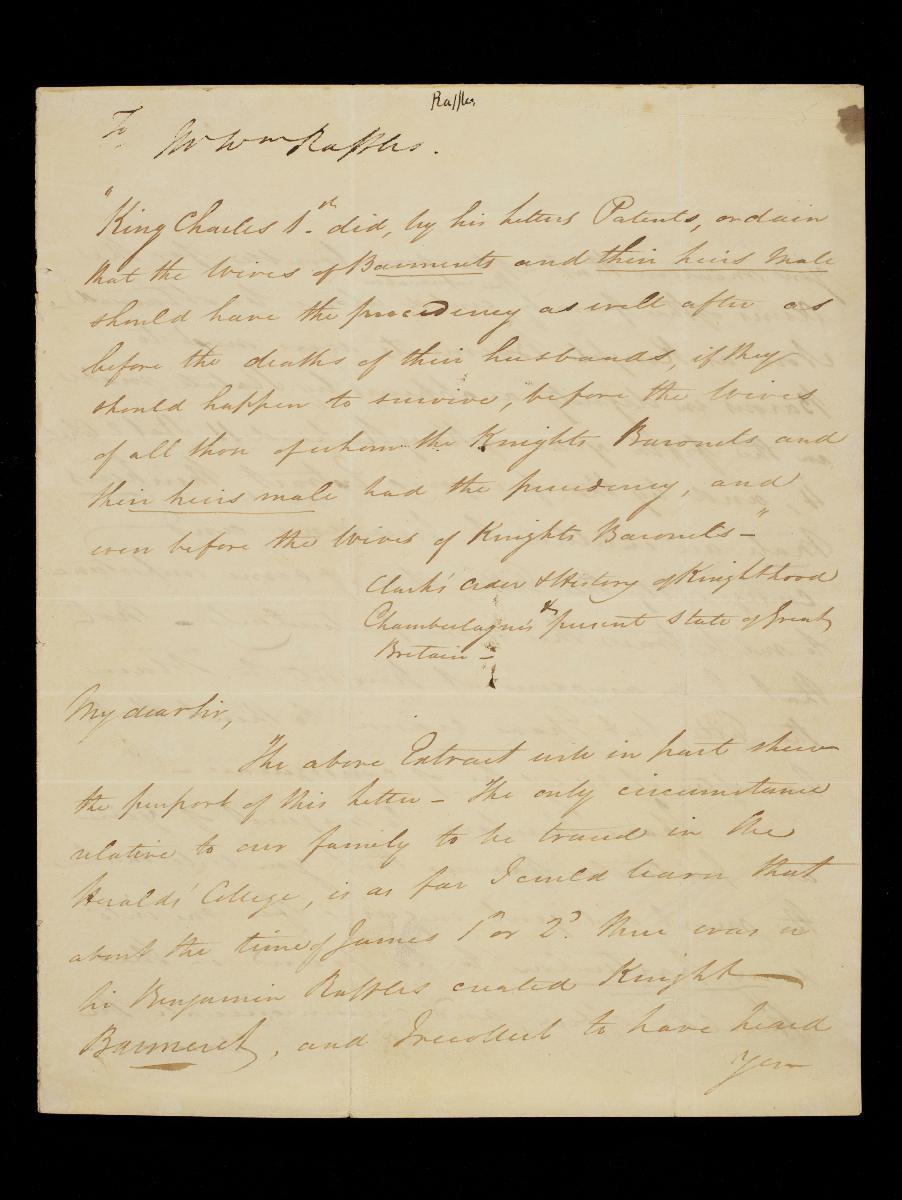 Raffles
To
Mr Wm Raffles.
"King Charles 1st. did, by his Letters Patents, ordain
that the Wives of Bannerets and their heirs Male
should have the precedency as well after as
before the deaths of their husbands, if they
should happen to survive, before the Wives
of all those of whom the Knights Baronets and
their heirs male had the precedency, and
even before the Wives of Knights Baronets—"
Clark's order & History of Knighthood
& Chamberlayne's present State of Great
Britain —
My dear Sir,
The above Extract will in part shew
the purport of this Letter — The only circumstance
relative to our family to be traced in the
Heralds' College, is as far I could learn that
about the time of James 1st or 2d. there was a
Sir Benjamin Raffles created Knight
Banneret, and I recollect to have heard
you